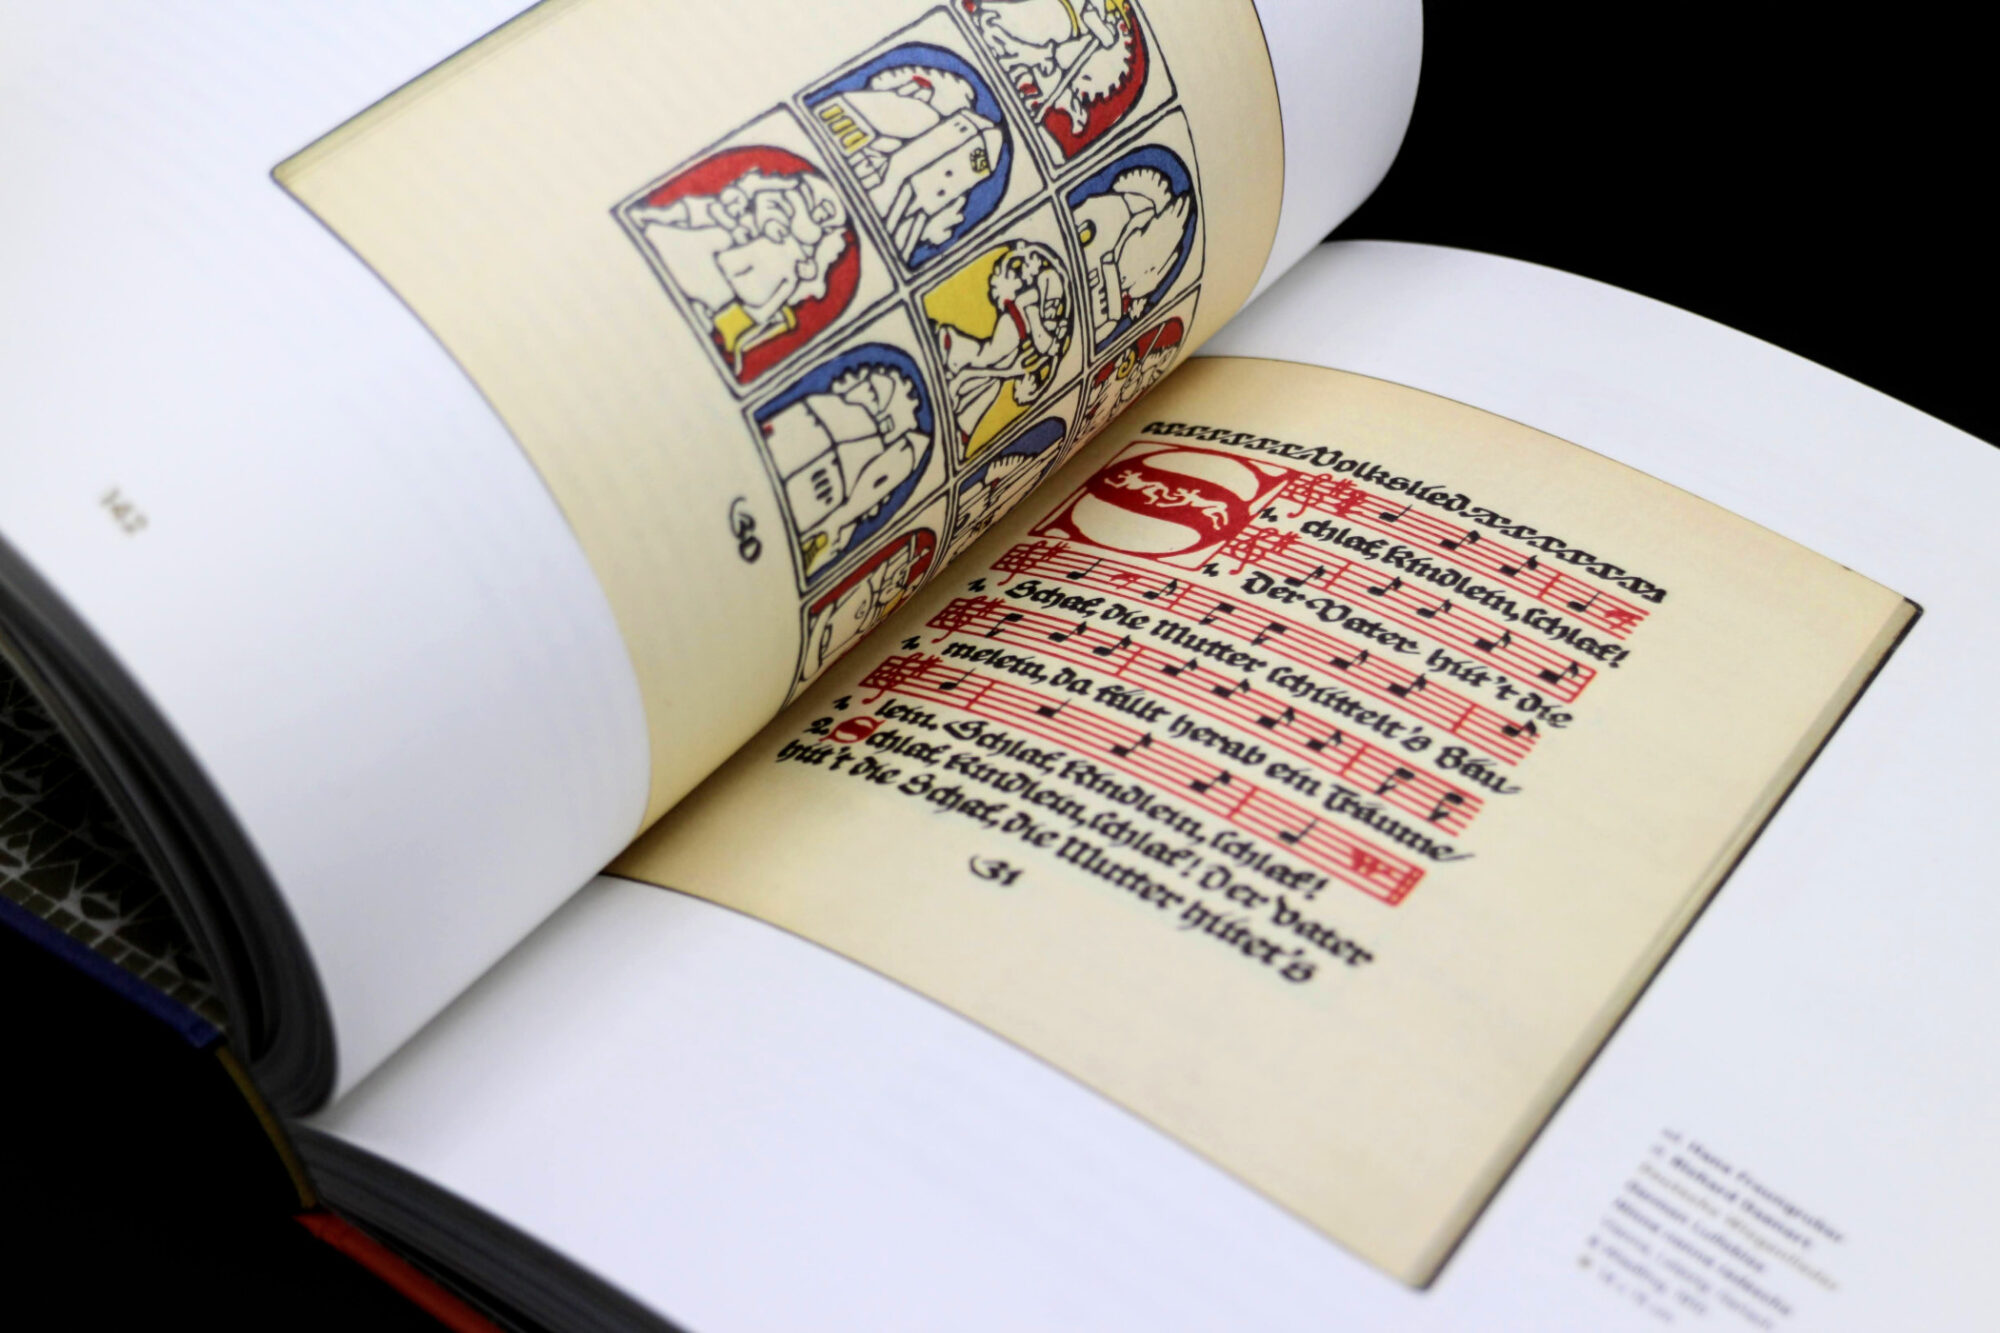 142
30
Volkslied
Schlaf, Kindlein, schlaf!
1. Der Vater hüt't die
1. Schaf, die Mutter schüttelt's Bäu⸗
1. melein, da fällt herab ein Träume⸗
1. lein. Schlaf, Kindlein, schlaf!
2. Schlaf, Kindlein, schlaf! Der Vater
hüt't die Schaf, die Mutter hütet's
31